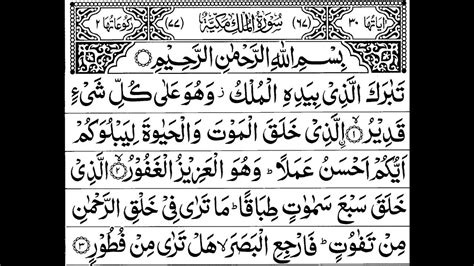 اٰیَاتُهَا ۳۰ (۶۷) سُوْرَةُ الْمُلْكِ مَكِّیَّةٌ (۷۷) رُكُوْعَاتُهَا ۲
بِسْمِ اللّٰهِ الرَّحْمٰنِ الرَّحِیْمِ
تَبٰرَكَ الَّذِیْ بِیَدِهِ الْمُلْكُ ز وَهُوَ عَلٰی كُلِّ شَیْءٍ
قَدِیْرُ ۙ﴿۱﴾ الَّذِیْ خَلَقَ الْمَوْتَ وَالْحَیٰوةَ لِیَبْلُوَكُمْ
اَیُّكُمْ اَحْسَنُ عَمَلًا ؕ وَهُوَ الْعَزِیْزُ الْغَفُوْرُ ۙ﴿۲﴾ الَّذِیْ
خَلَقَ سَبْعَ سَمٰوٰتٍ طِبَاقًا ؕ مَا تَرٰی فِیْ خَلْقِ الرَّحْمٰنِ
مِنْ تَفٰوُتٍ ؕ فَارْجِعِ الْبَصَرَ ۙ هَلْ تَرٰی مِنْ فُطُوْرٍ ﴿۳﴾